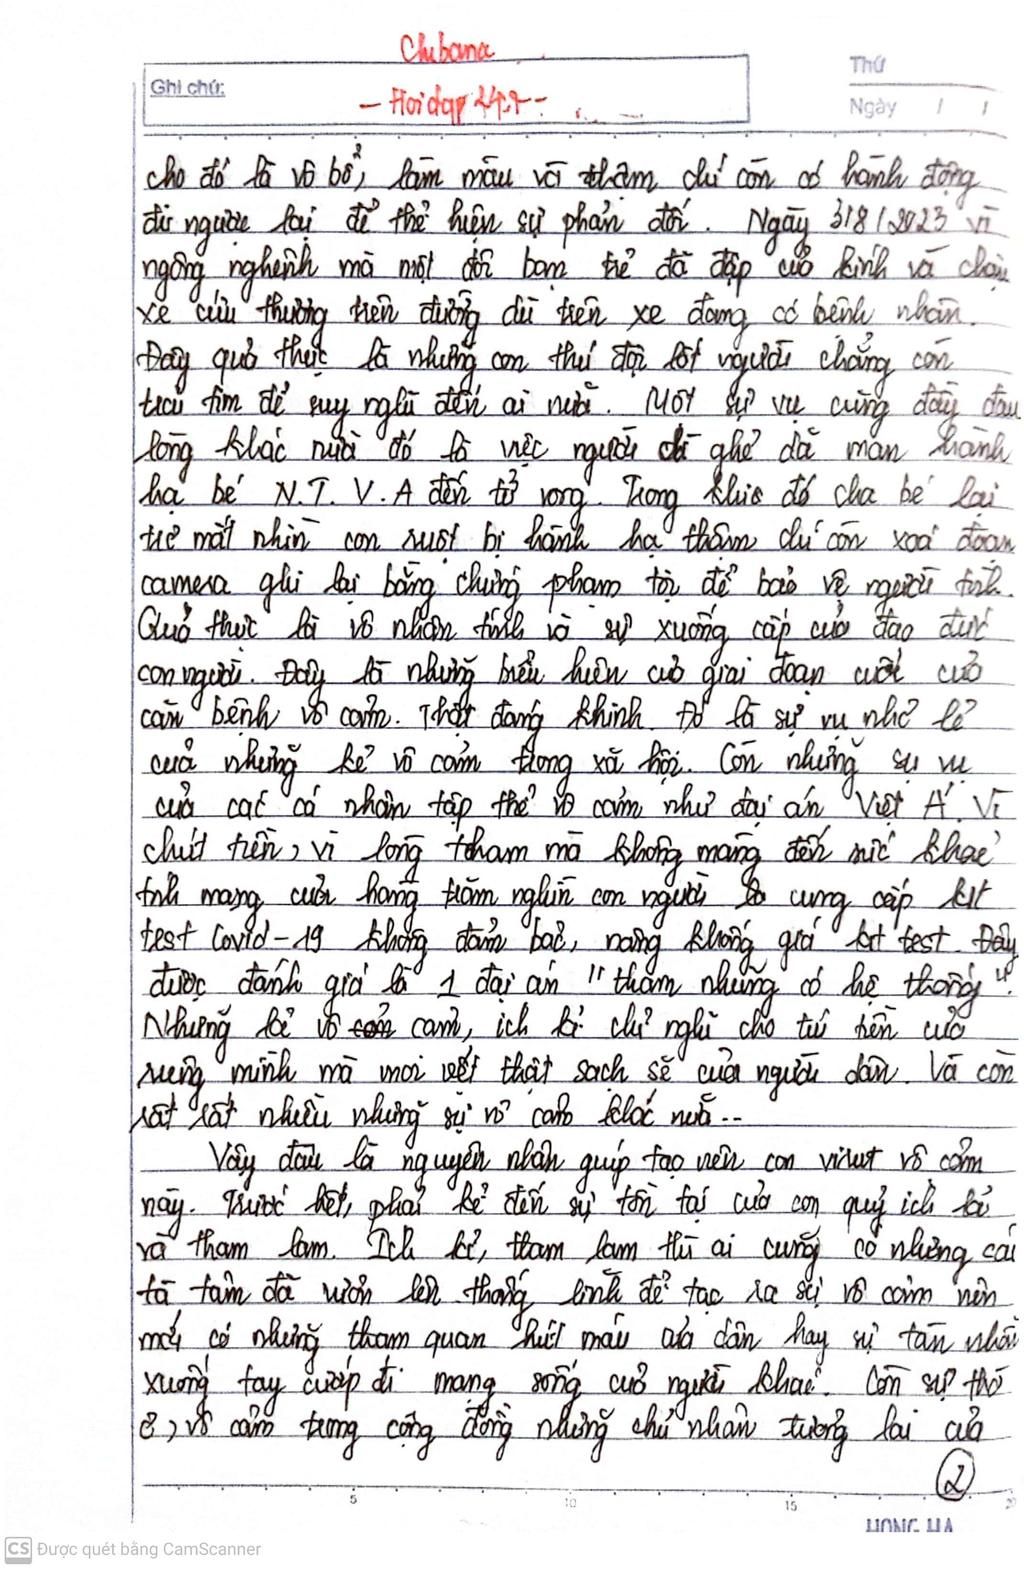 Chibana
Ghi chú:
- Hoidap 247 -
Thứ
Ngày / /
cho đó là vô bổ, làm màu và thậm chí còn có hành động
đi ngược lại để thể hiện sự phản đối. Ngày 3/8/2023 vì
ngông nghênh mà một đôi bạn trẻ đã đập cửa kính và chặn
xe cứu thương trên đường dù trên xe đang có bệnh nhân.
Đây quả thực là những con thú đội lốt người chẳng còn
trái tim để suy nghĩ đến ai nữa. Một sự vụ cũng đầy đau
lòng khác nữa đó là việc người dì ghẻ dã man hành
hạ bé N.T.V.A đến tử vong. Trong khi đó cha bé lại
trơ mắt nhìn con ruột bị hành hạ thậm chí còn xoá đoạn
camera ghi lại bằng chứng phạm tội để bảo vệ người tình.
Quả thực là vô nhân tính và sự xuống cấp của đạo đức
con người. Đây là những biểu hiện của giai đoạn cuối của
căn bệnh vô cảm. Thật đáng khinh. Đó là sự vụ nhỏ lẻ
của những kẻ vô cảm trong xã hội. Còn những sự vụ
của các cá nhân tập thể vô cảm như đại án Việt Á. Vì
chút tiền, vì lòng tham mà không màng đến sức khoẻ
tính mạng của hàng trăm nghìn con người cung cấp kit
test Covid-19 không đảm bảo, nâng khống giá kit test. Đây
được đánh giá là 1 đại án "tham nhũng có hệ thống".
Những kẻ vô cảm, ích kỉ chỉ nghĩ cho túi tiền của
riêng mình mà moi vét thật sạch sẽ của người dân. Và còn
rất rất nhiều những sự vô cảm khác nữa...
Vậy đâu là nguyên nhân giúp tạo nên con virut vô cảm
này. Trước hết, phải kể đến sự tồn tại của con quỷ ích kỉ
và tham lam. Ích kỉ, tham lam thì ai cũng có nhưng cái
tà tâm đã vươn lên thống lĩnh để tạo ra sự vô cảm nên
mới có những tham quan hút máu của dân hay sự tàn nhẫn
xuống tay cướp đi mạng sống của người khác. Còn sự thờ
ơ, vô cảm trong cộng đồng những chủ nhân tương lai của
2
5 10 15 20
HONG HA
CS Được quét bằng CamScanner